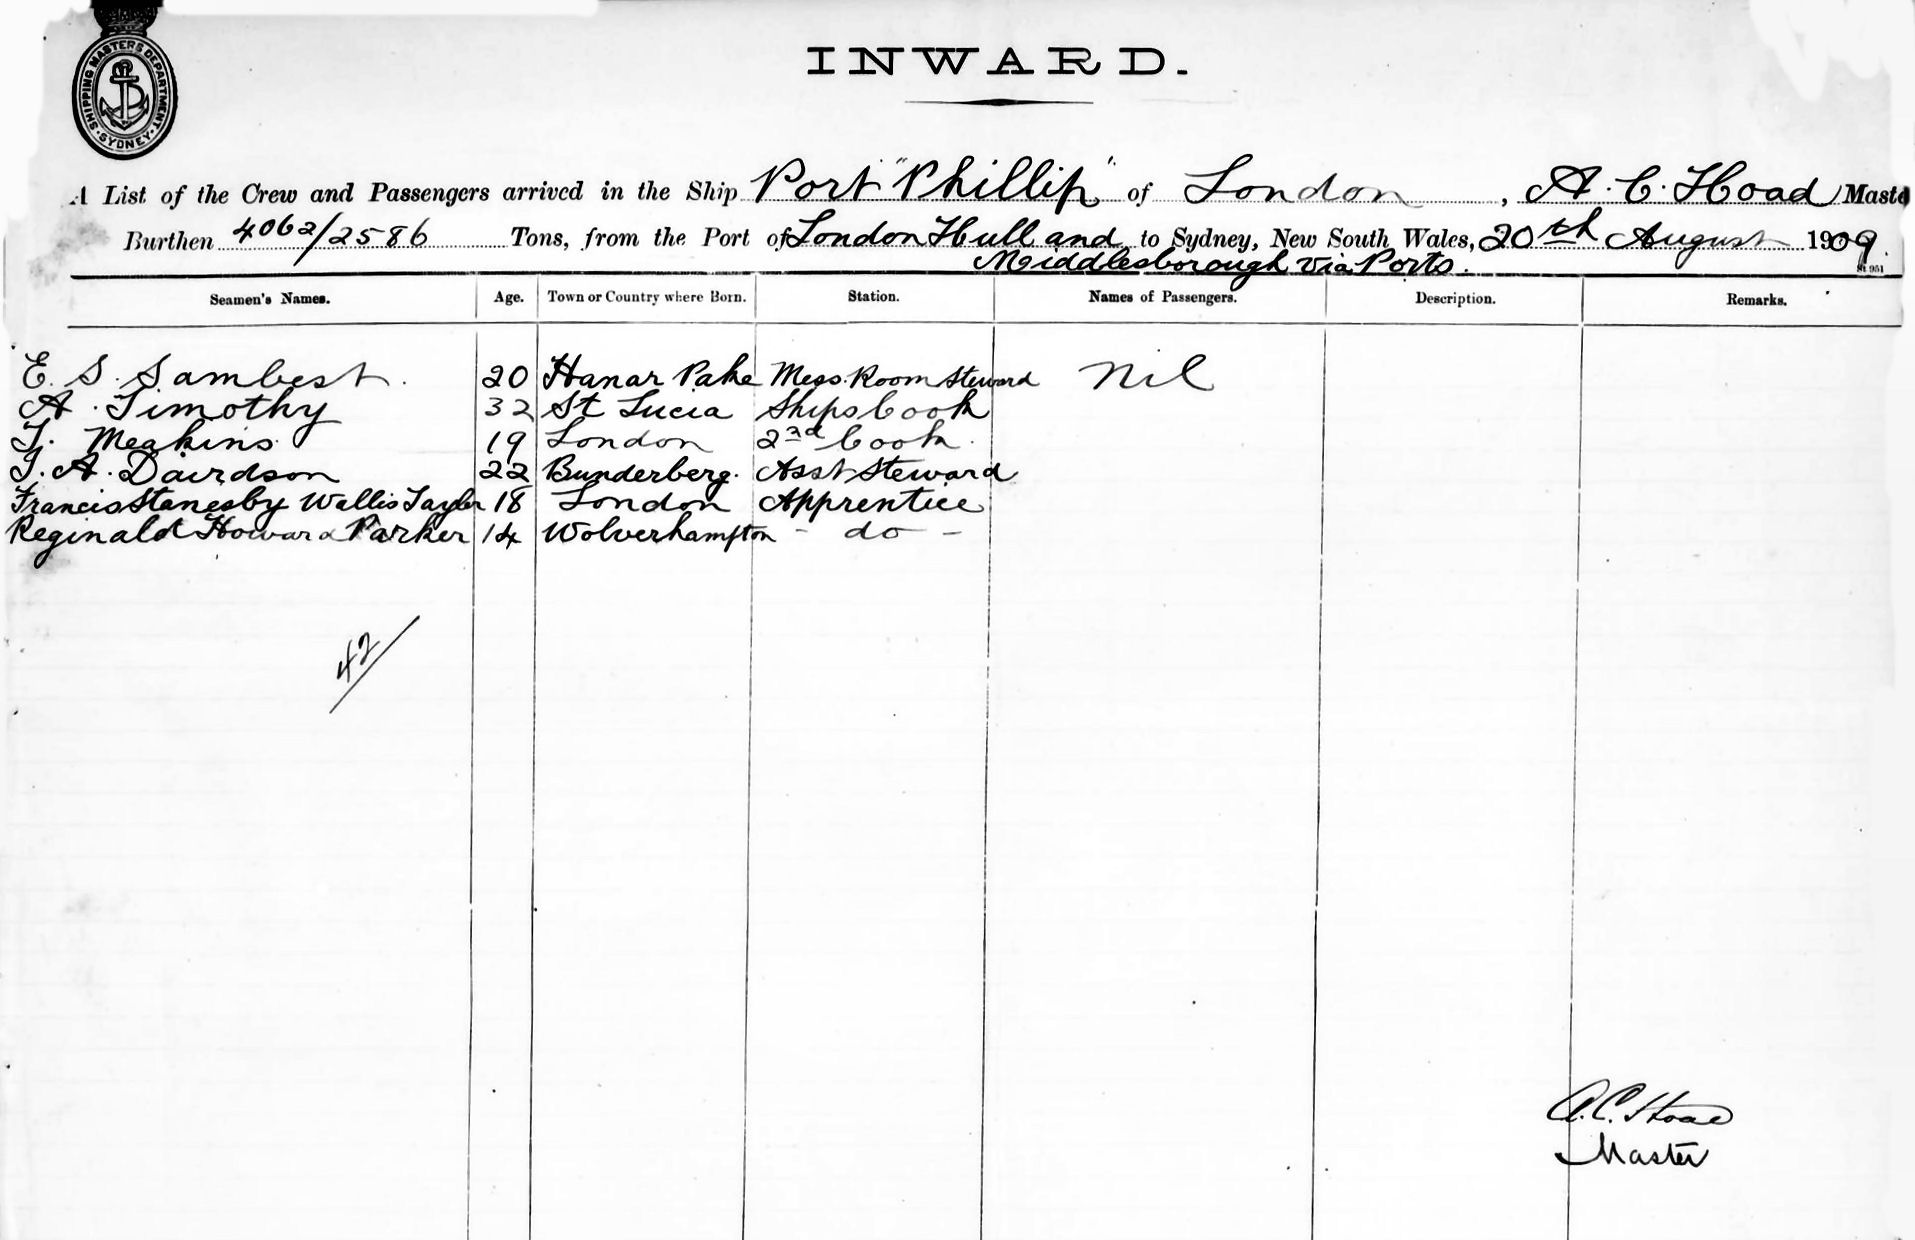 SHIPPING MASTERS DEPARTMENT · SYDNEY ·
INWARD.
A List of the Crew and Passengers arrived in the Ship Port "Phillip" of London, A. C. Hoad Maste
Burthen 4062/2586 Tons, from the Port of London Hull and to Sydney, New South Wales, 20th August 1909.
Middlesborough via Ports.
Seamen's Names. Age. Town or Country where Born. Station. Names of Passengers. Description. Remarks.
E. S. Sambest. 20 Hanar Pake Mess Room Steward Nil
A. Timothy 32 St Lucia Ships Cook
T. Meakins 19 London 2nd Cook.
T. A. Davidson 22 Bunderberg. Asst Steward
Francis Stanesby Wallis Tayler 18 London Apprentice
Reginald Howard Parker 14 Wolverhampton - do -
42
A. C. Hoad
Master